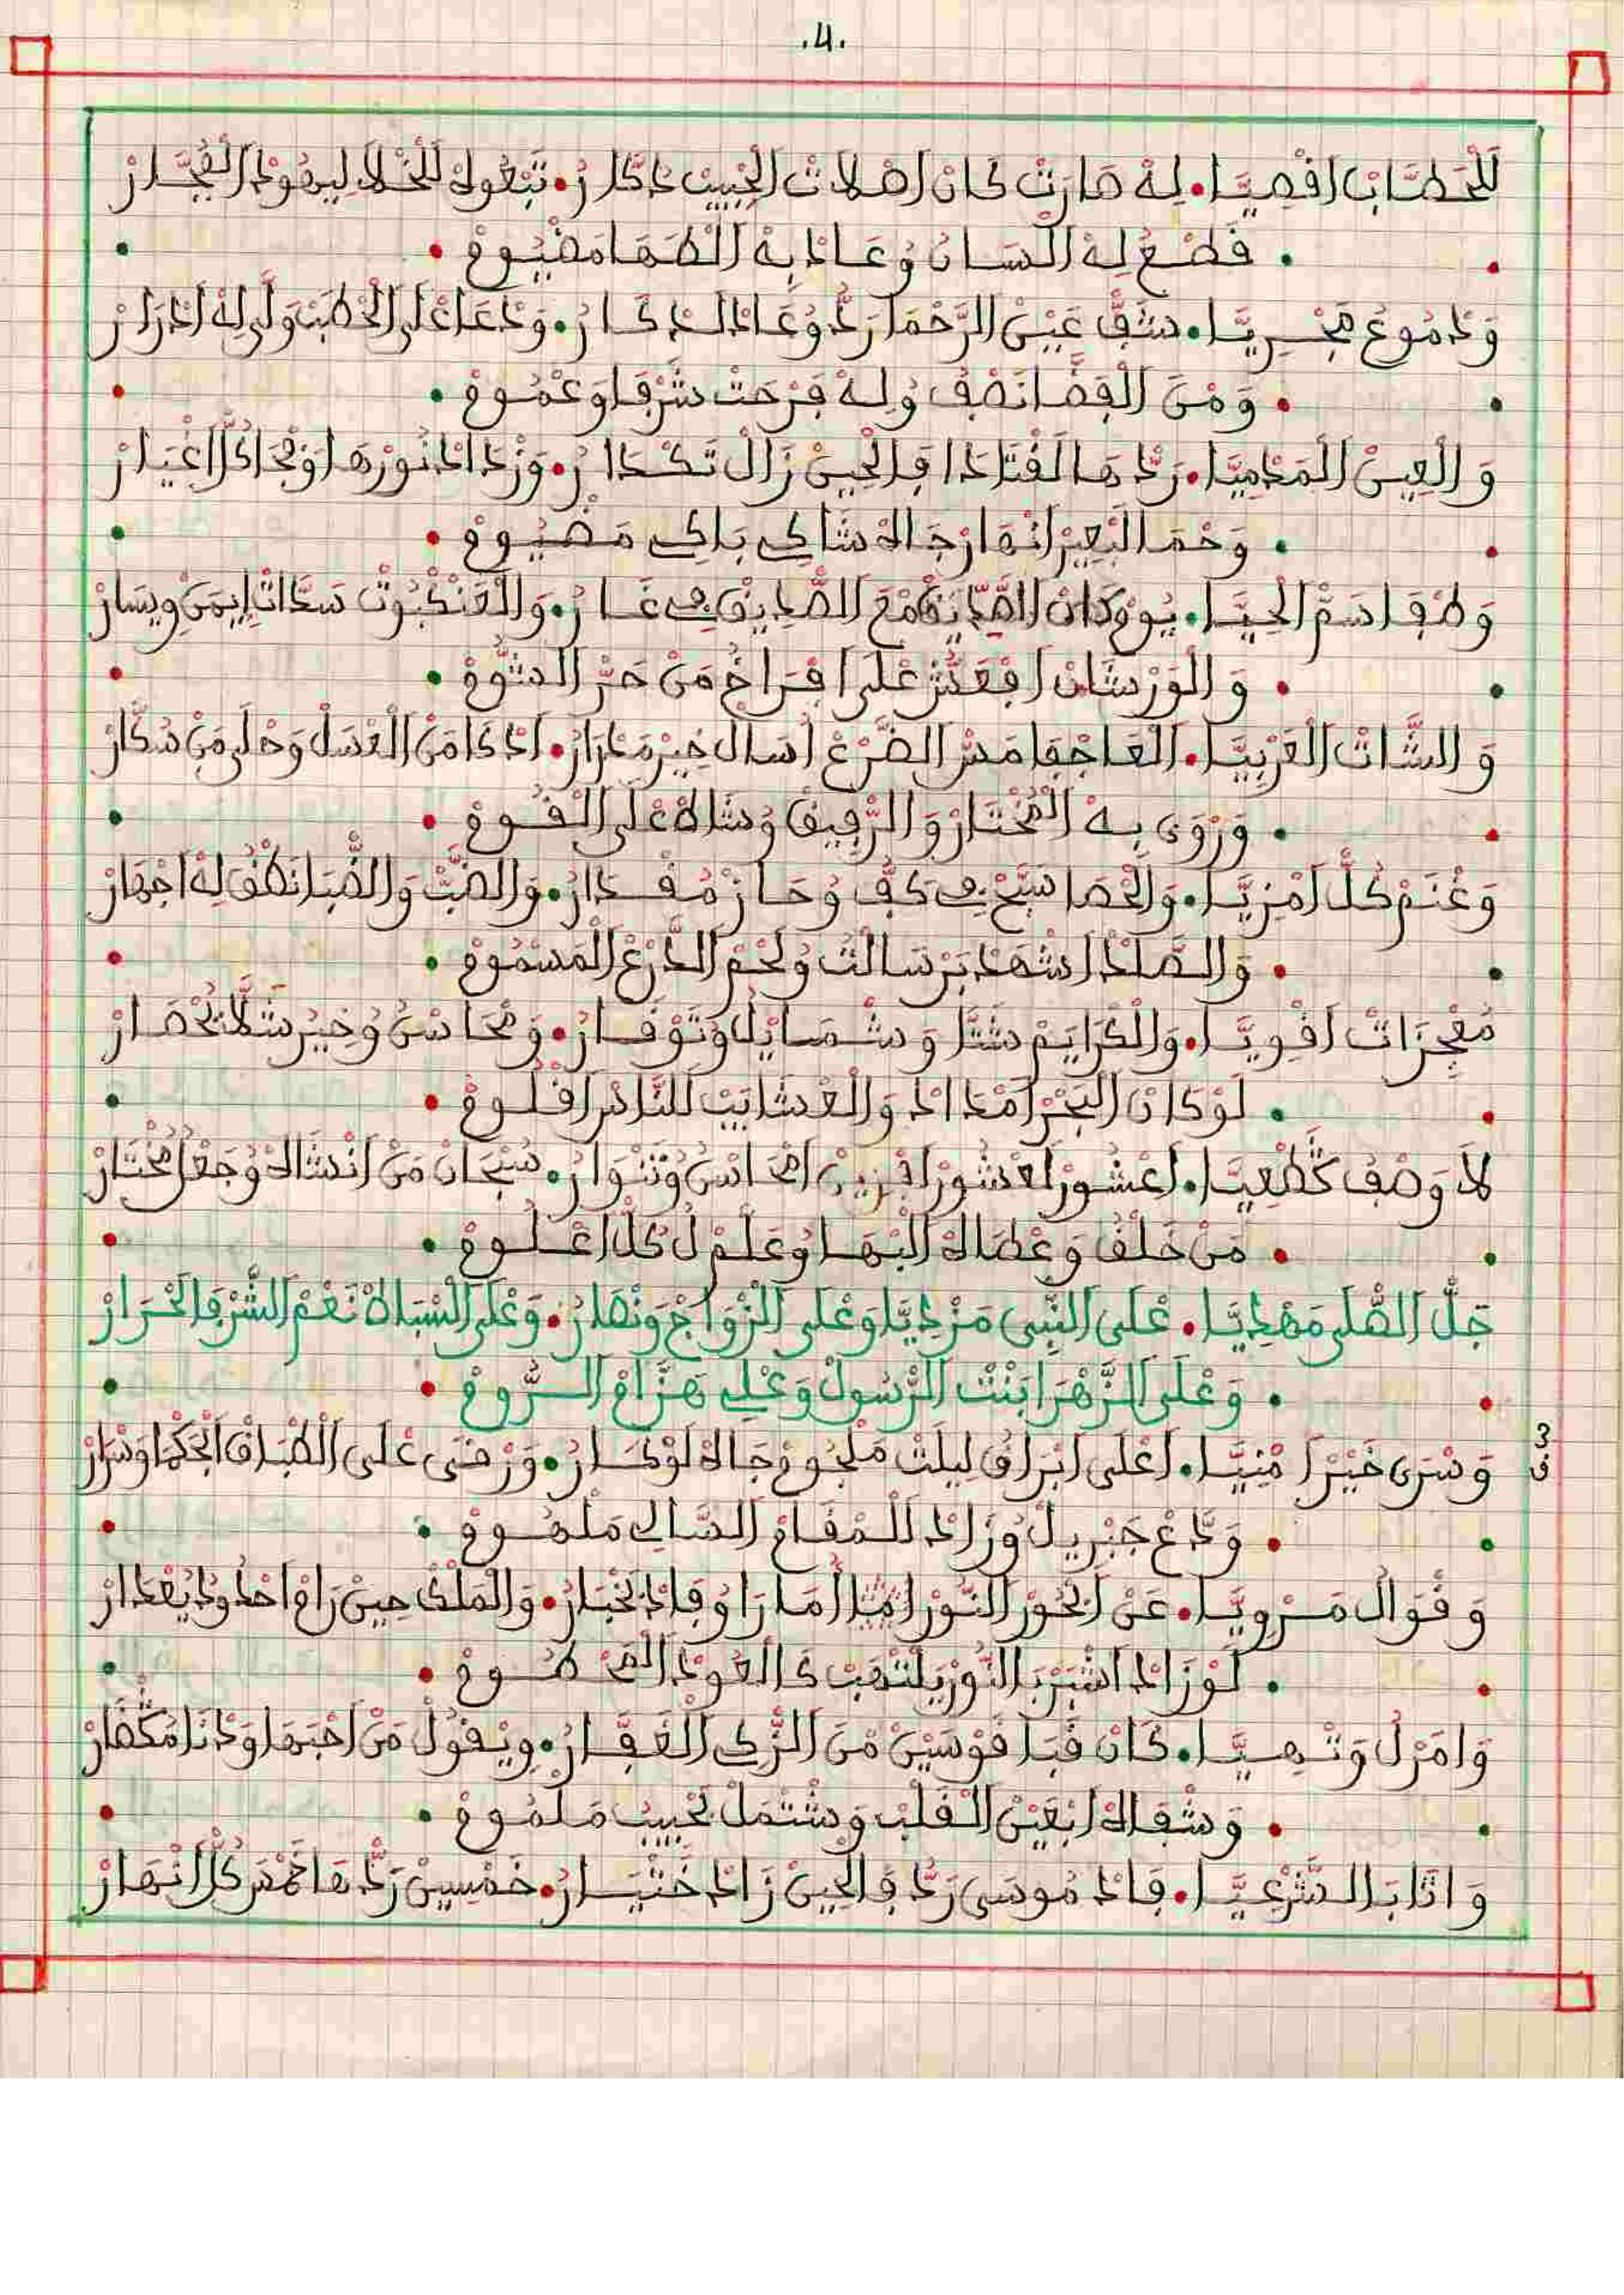 .4.
لَلْحَطَّابْ اقْصِيَّا. لِهْ صَارَتْ كَانْ اصْلَاتْ الْحْبِيبْ دَكَّارُ. تَبْعُوهْ لَلْخْلَا لِيهُودْ الْفُجَّارْ
. قَطْعْ لِهْ الْسَانُ وُعَادْ بِهْ الطَهَ مَضْيُومْ .
وَدْمُوعُ مَجْرِيَّا. شَقّْ عَيْنْ الرَّحْمَا رَدُّ وُعَادْ الدْكَارُ. وَدْعَا عْلَى الْحْطَبْ وَلَّى لِهْ ادْرَارْ
. وَمْنْ الْفِضَّا نَصْفُ وُلِهْ فَرْحَتْ شَرْفَا وَعْمُومْ .
وَالْعِينْ الْمَدْمِيَّا. رَدّْهَا لَقْتَادَا فَالْحِينْ زَالْ تَكْدَارُ. وَزْدَادْ نُورْهَا وْمْحَا كُلّْ اغْيَارْ
. وَحْمَا الْبْعِيرْ انْهَارْ جَاهْ شَاكِي بَاكِي مَضْيُومْ .
وَطْفَا سَمّْ الْحِيَّا. يُومْ كَانْ الصّْدِّيقْ مْعَ الصَّادِيقْ فِي غَارُ. وَالْعَنْكْبُوتْ سَدَّاتْ إِيمَنْ وِيسَارْ
. وَالْوَرْشَانْ افْقَشّْ عْلَى افْرَاخُ مَنْ حَرّْ الشُّومْ .
وَالشَّاتْ الْعَرْبِيَّا. الْعَاجْفَا مَسّْ الضَّرْعْ اسَالْ خِيرْ مَدْرَارُ. ادْكَا مَنْ الْعْسَلْ وَحْلَى مَنْ سُكَّارْ
. وَرْوَى بِهْ الْمُخْتَارْ وَالرّْفِيقْ وُشَاهْ عْلَى الْقُومْ .
وَغْنَمْ كُلّْ امْزِيَّا. وَالْحْصَا سَبَّحْ فِي كَفُّ وُحَازْ مُقْدَارُ. وَالضَّبّْ وَالضّْبَا نَطْقُ لِهْ اجْهَارْ
. وَالصَّلْدْ اشْهَدْ بَرْسَالْتُ وُلَحْمْ الدْرَعْ الْمَسْمُومْ .
مُعْجِزَاتْ اقْوِيَّا. وَالْكْرَايَمْ شَتَّا وَشْمَايْلُ وَتْوَقَارُ. وَمْحَاسْنُ وُخِيرُ شَلَّا نَحْصَارْ
. لَوْ كَانْ الْبْحَرْ امْدَادْ وَالْعْشَايَبْ لَلنَّاسْ اقْلُومْ .
لَا وَصْفُ كَطْعِيَّا. اعْشُورْ لَعْشُورْ اقْرِيبْ امْحَاسْنُ وُتَنْوَارُ. سُبْحَانْ مَنْ انْشَاهْ وُجَعْلُ مُخْتَارْ
. مَنْ خَلْقُ وَعْطَاهْ الْبْهَا وُعَلْمْ لُ كُلّْ اعْلُومْ .
جَلّْ الصّْلَى مَهْدِيَّا. عْلَى النّْبِي مَزْدِيَّا وَعْلَى الزْوَاجْ وَنْصَارُ. وَعْلَى السْبَاطْ نَعْمْ الشّْرْفَا لَحْرَارْ
. وَعْلَى الزَّهْرَا بَنْتْ الرّْسُولْ وَعْلِي هَزَّامْ الرُّومْ .
3 ق
وَسْرَى خَيْرْ امْنِيَّا. اعْلَى ابْرَاقُ لِيلَتْ مَلْجُومْ جَاهْ لَوْكَارُ. وَرْقَى عْلَى الطْبَاقْ الْحَكْمَا وَسْرَارْ
. وَدَّعْ جَبْرِيلْ وُزَادْ الْمْقَامْ السَّالِي مَلْهُومْ .
وَقْوَالْ مَرْوِيَّا. عَنْ الْحُورْ النُّورْ امْثَا امَا رَاوْ فَادْ لَخْبَارُ. وَالْمَلْكْ حِينْ رَامْ احْدُودْ يُعْدَارْ
. لَوْ زَادْ اشْبَرْ بَالنُّورْ يَلْتْهَبْ كَالْعُودْ الْمَحْطُومْ .
وَامَرْلُ وَتْهِيَّا. كَانْ قَبَا قَوْسَيْنْ مْنْ الزّْكِي الْغَفَّارُ. وِيْقُولْ مَنْ احْبَهَا وَدْنَا مَكْفَارْ
. وَشْفَاهْ ابْعَيْنْ الْقَلْبْ وَشْتْمَلْ بَحْبِيبُ مَلْمُومْ .
وَاتَابَ الشَّرْعِيَّا. فَادْ مُوسَى رَدُّ فَالْحِينْ زَادْ خَتْيَارُ. خَمْسِينْ رَدّْهَا خَمْسْ كُلّْ انْهَارْ